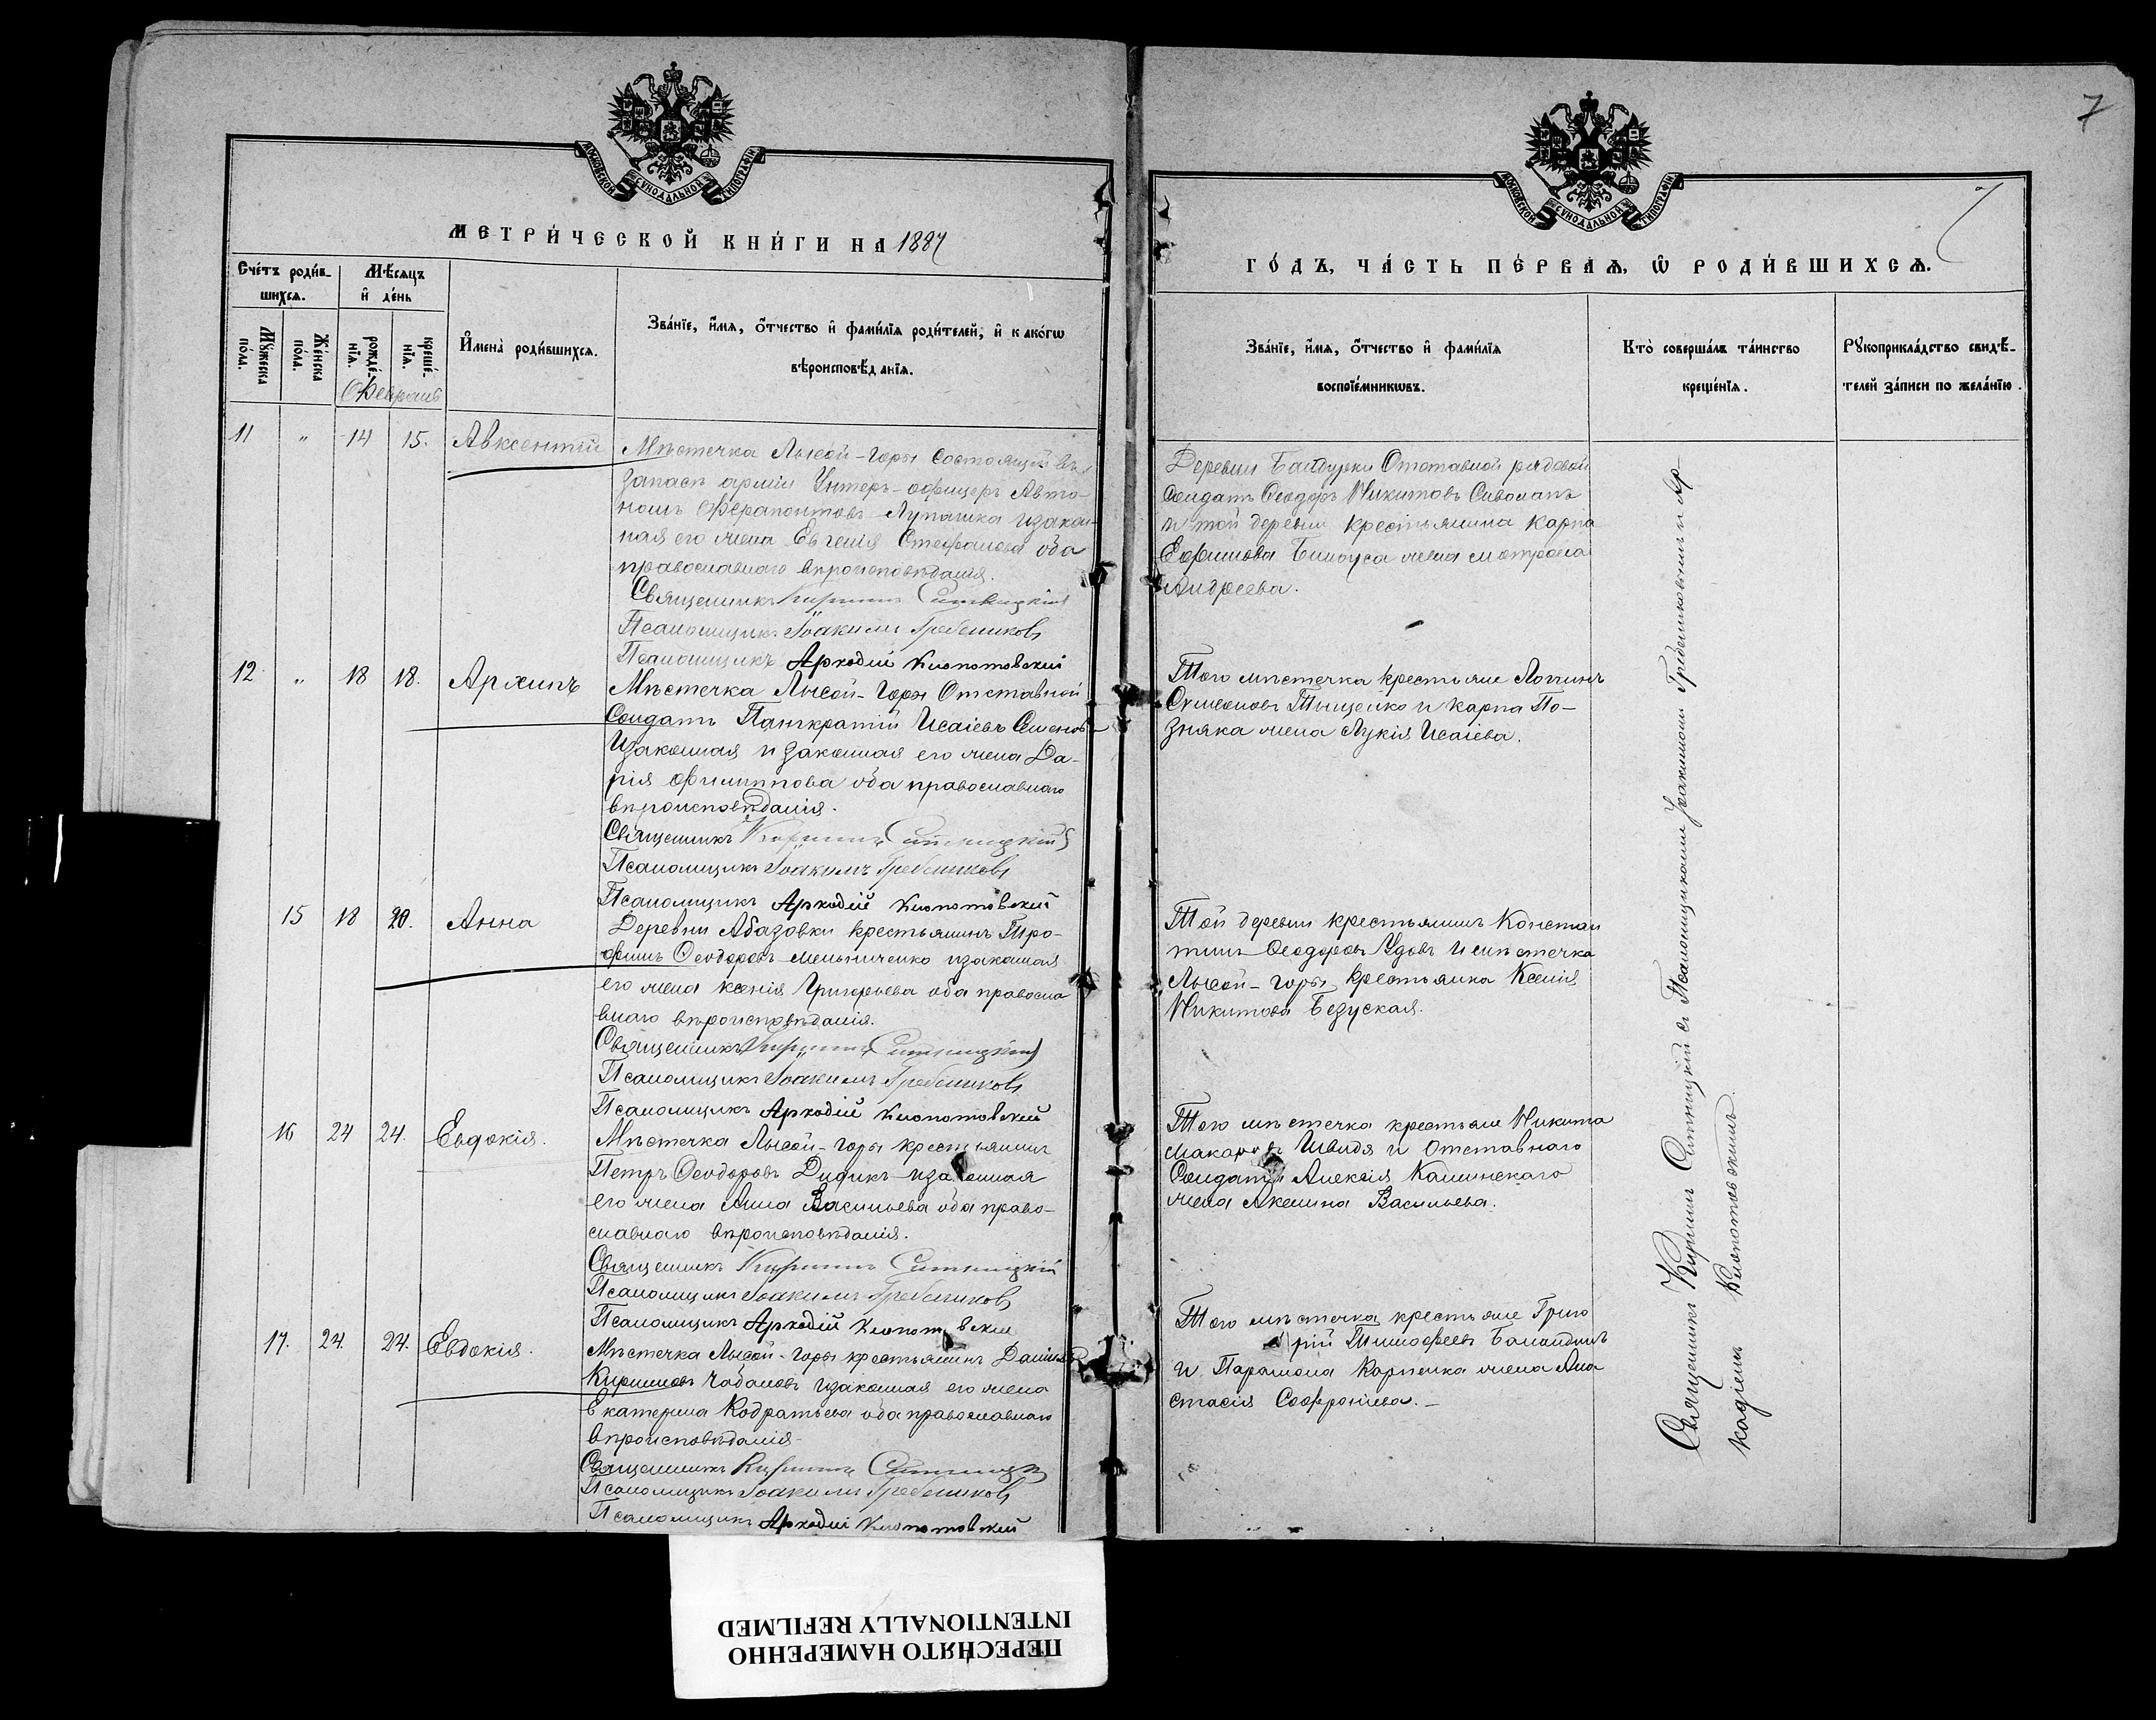 7
МОСКОВСКОЙ СѴНОДАЛЬНОЙ ТИПОГРАФІИ
МОСКОВСКОЙ СѴНОДАЛЬНОЙ ТИПОГРАФІИ
7
МЕТРИ́ЧЕСКОЙ КНИ́ГИ НА 1887
ГО́ДЪ, ЧА́СТЬ ПЕ́РВАѦ, Ѡ҆ РОДИ́ВШИХСѦ.
Сче́тъ роди́в-
шихсѧ.
Мꙋ́жеска по́ла.
Же́нска по́ла.
Мѣ́сѧцъ
и҆ де́нь
рожде́-
нїѧ.
креще́-
нїѧ.
Февраль
И҆мена̀ роди́вшихсѧ.
Зва́нїе, и҆́мѧ, ѻ҆́тчество и҆ фами́лїѧ роди́телей, и҆ како́гѡ
вѣроисповѣ́данїѧ.
Зва́нїе, и҆́мѧ, ѻ҆́тчество и҆ фами́лїѧ
воспрїе́мникѡвъ.
Кто̀ соверша́лъ та́инство
креще́нїѧ.
Рꙋкоприкла́дство свидѣ́-
телей за́писи по жела́нїю.
11 " 14 15. Авксентій
Мѣстечка Лысой-горы состоящій въ
запасѣ арміи Унтеръ-офицеръ Авто-
номъ Ферапонтовъ Лупашка и закон-
ная его жена Евгенія Стефанова оба
православнаго вѣроисповѣданія.
Священникъ Кириллъ Ситницкій
Псаломщикъ Іоакимъ Гребениковъ
Псаломщикъ Аркадій Клопотовскій
Деревни Бандурки Отставной рядовой
Солдатъ Ѳеодоръ Никитовъ Сиволапъ
и той деревни крестьянина Карпа
Ефимова Билоуса жена Мотрона
Андреева.
12 " 18 18. Архипъ
Мѣстечка Лысой-Горы Отставной
Солдатъ Панкратій Исаіевъ Семенов
Изаконная и законная его жена Да-
рія Филиппова оба православнаго
вѣроисповѣданія.
Священникъ Кириллъ Ситницкій
Псаломщикъ Іоакимъ Гребениковъ
Псаломщикъ Аркадій Клопотовскій
Того мѣстечка крестьяне Логинъ
Симеоновъ Тыщенко и Карпа По-
зняка жена Лукія Исаіева.
15 18 20. Анна
Деревни Абазовки крестьянинъ Тро-
фимъ Ѳеодоровъ Мельниченко изаконная
его жена Ксенія Григорьева оба правосла
внаго вѣроисповѣданія.
Священникъ Кириллъ Ситницкій
Псаломщикъ Іоакимъ Гребениковъ
Псаломщикъ Аркадій Клопотовскій
Той деревни крестьянинъ Констан
тинъ Ѳеодоровъ Удовъ и мѣстечка
Лысой-горы крестьянка Ксенія
Никитова Безуская.
16 24 24. Евдокія.
Мѣстечка Лысой-горы крестьянинъ
Петръ Ѳеодоровъ Дидикъ изаконная
его жена Анна Васильева оба право-
славнаго вѣроисповѣданія.
Священникъ Кириллъ Ситницкій
Псаломщикъ Іоакимъ Гребениковъ
Псаломщикъ Аркадій Клопотовскій
Того мѣстечка крестьяне Никита
Макаровъ Швидя и отставнаго
Солдата Алексія Калинскаго
жена Акелина Васильева.
17. 24. 24. Евдокія.
Мѣстечка Лысой-горы крестьянинъ Даніилъ
Кирилловъ Чабановъ изаконная его жена
Екатерина Кодратьева оба православнаго
вѣроисповѣданія
Священникъ Кириллъ Ситницкій
Псаломщикъ Іоакимъ Гребениковъ
Псаломщикъ Аркадій Клопотовскій
Того мѣстечка крестьяне Григо
рій Тимофеевъ
и Парамона Карпенка жена Ана
стасія Софроніева.
Священникъ Кириллъ Ситницкій съ Псаломщиками Іоакимомъ Гребениковымъ и Ар-
кадіемъ Клопотовскимъ.
ПЕРЕСНЯТО НАМЕРЕННО
INTENTIONALLY REFILMED